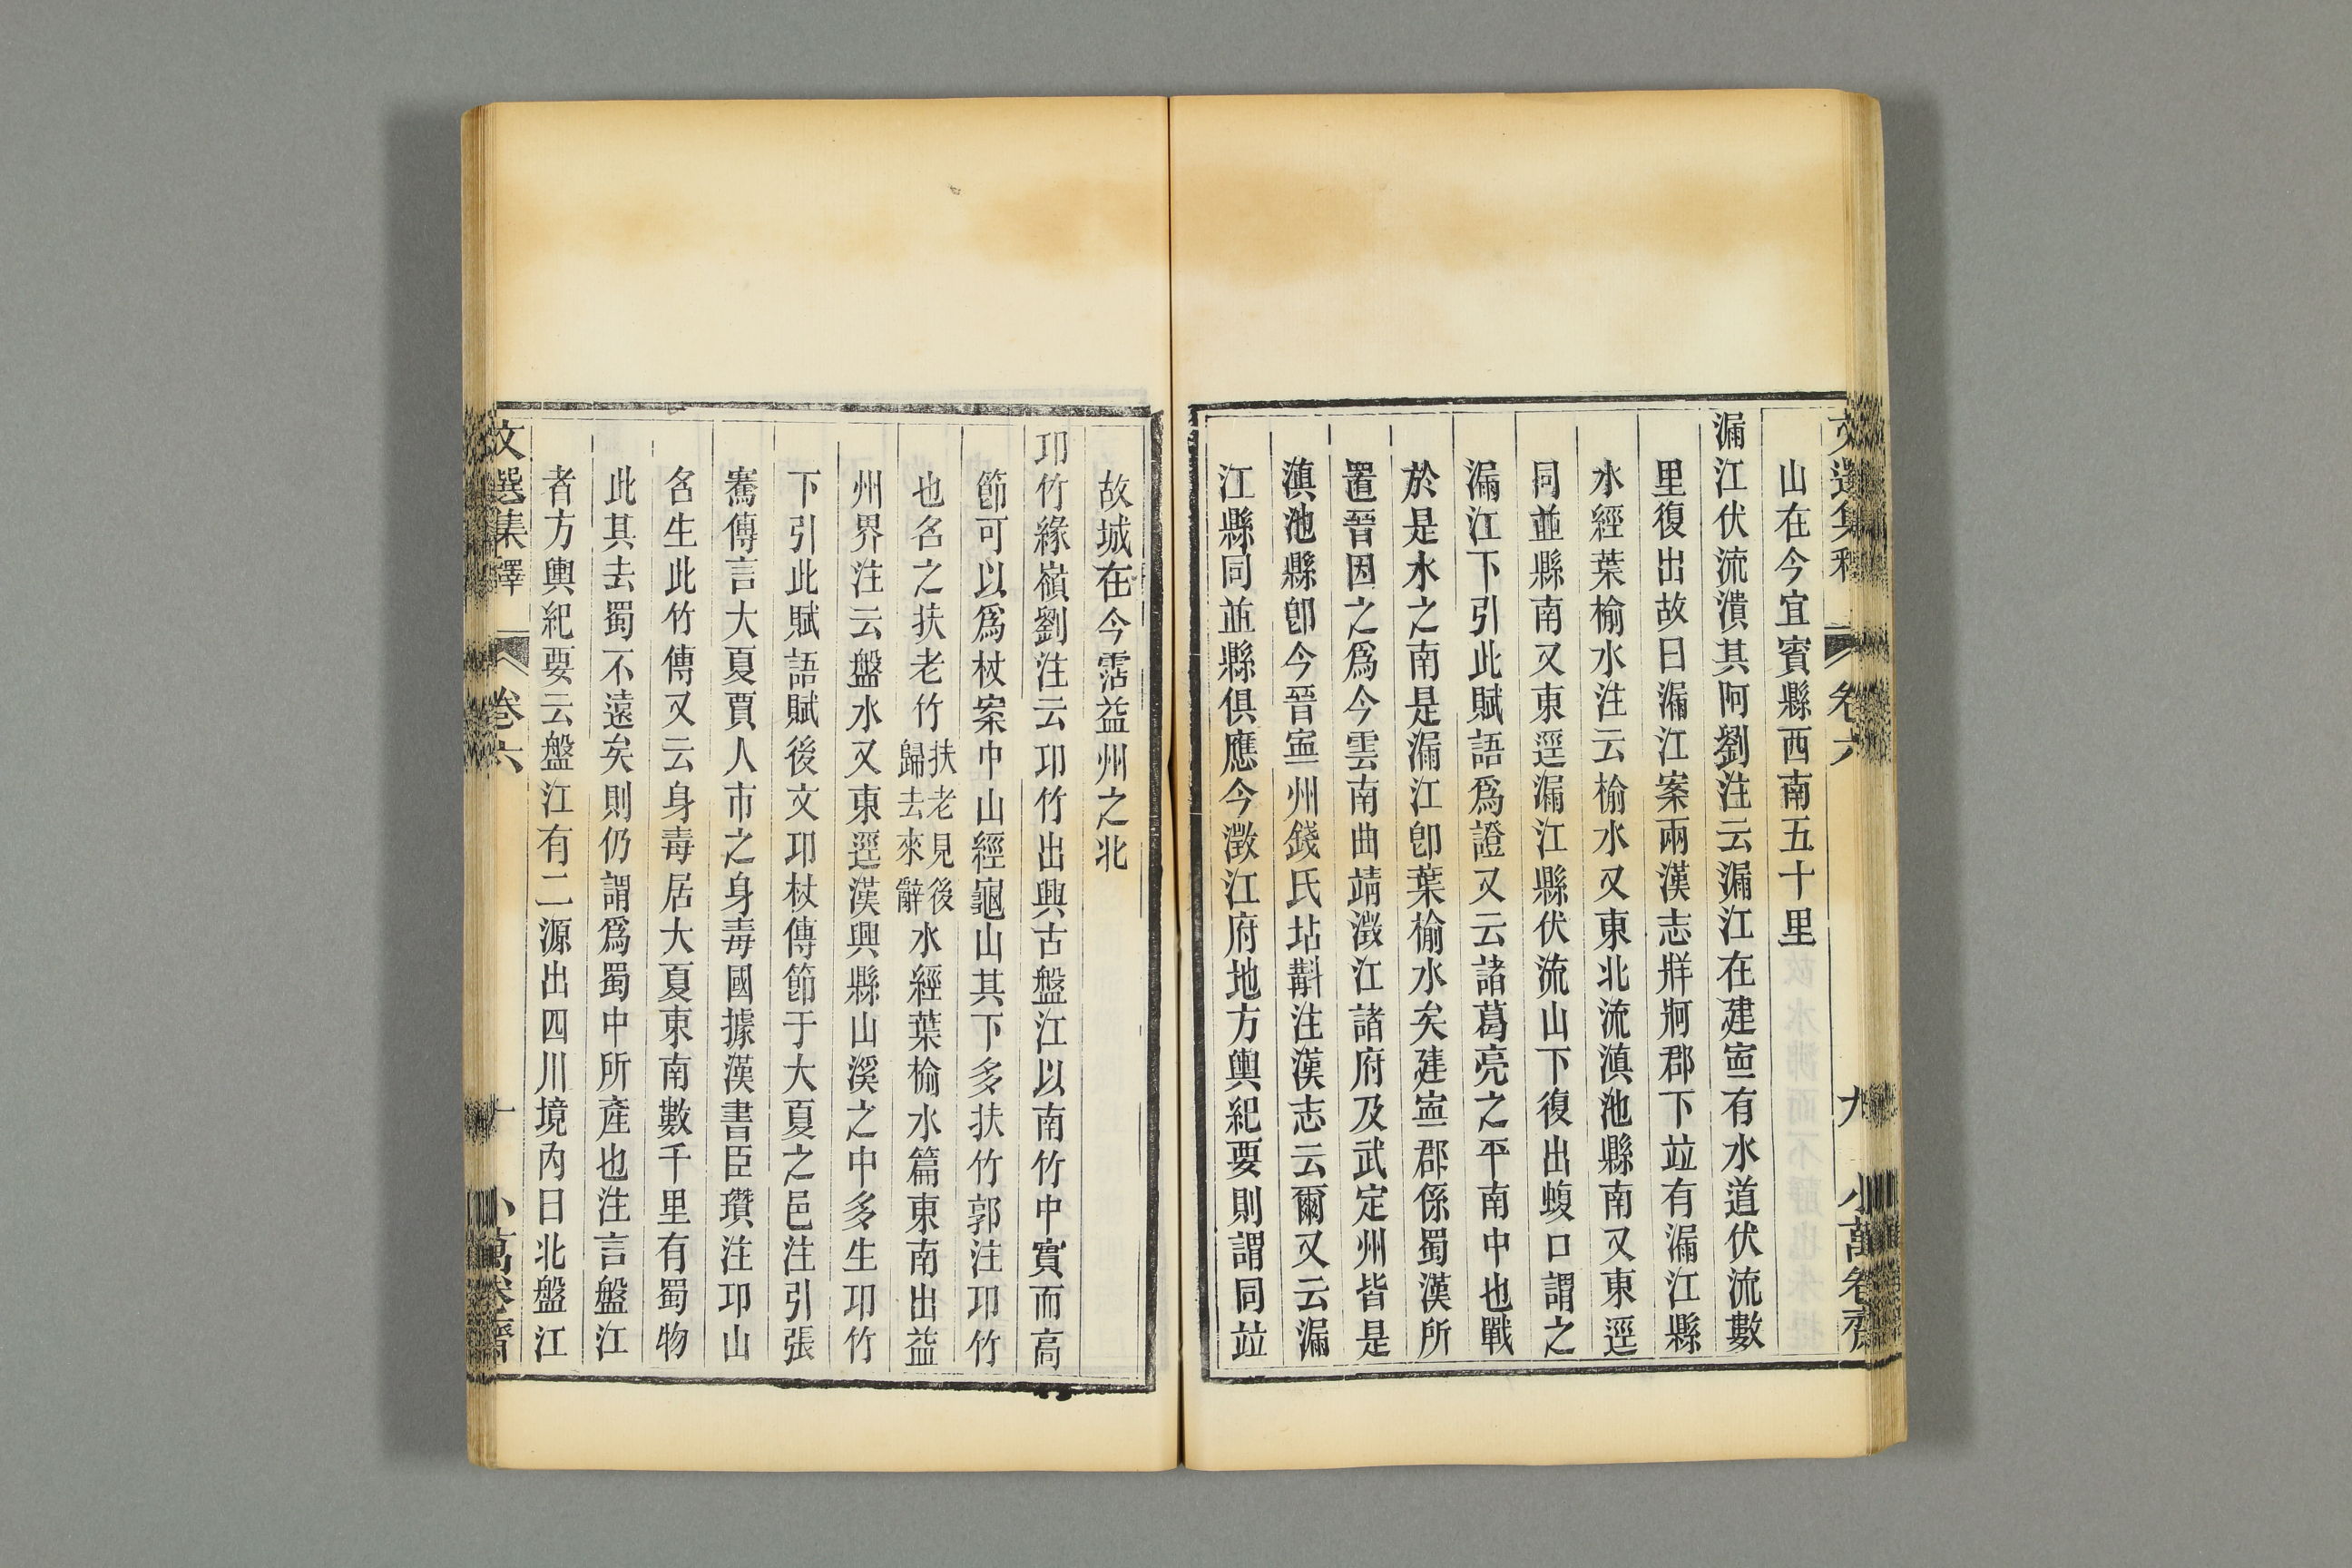 文選集釋 卷六 九 小萬卷齋
山在今宜賓縣西南五十里
漏江伏流潰其阿劉注云漏江在建寍有水道伏流數
里復出故曰漏江案兩漢志牂牁郡下竝有漏江縣
水經葉榆水注云榆水又東北流滇池縣南又東逕
同並縣南又東逕漏江縣伏流山下復出蝮口謂之
漏江下引此賦語爲證又云諸葛亮之平南中也戰
於是水之南是漏江卽葉榆水矣建寍郡係蜀漢所
置晉因之爲今雲南曲靖澂江諸府及武定州皆是
滇池縣卽今晉寍州錢氏坫斠注漢志云爾又云漏
江縣同並縣俱應今澂江府地方輿紀要則謂同竝
故城在今霑益州之北
邛竹緣嶺劉注云邛竹出興古盤江以南竹中實而高
節可以爲杖案中山經龜山其下多扶竹郭注邛竹
也名之扶老竹扶老見後歸去來辭水經葉榆水篇東南出益
州界注云盤水又東逕漢興縣山溪之中多生邛竹
下引此賦語賦後文邛杖傳節于大夏之邑注引張
騫傳言大夏賈人市之身毒國據漢書臣瓚注邛山
名生此竹傳又云身毒居大夏東南數千里有蜀物
此其去蜀不遠矣則仍謂爲蜀中所產也注言盤江
者方輿紀要云盤江有二源出四川境內曰北盤江
文選集釋 卷六 十 小萬卷齋